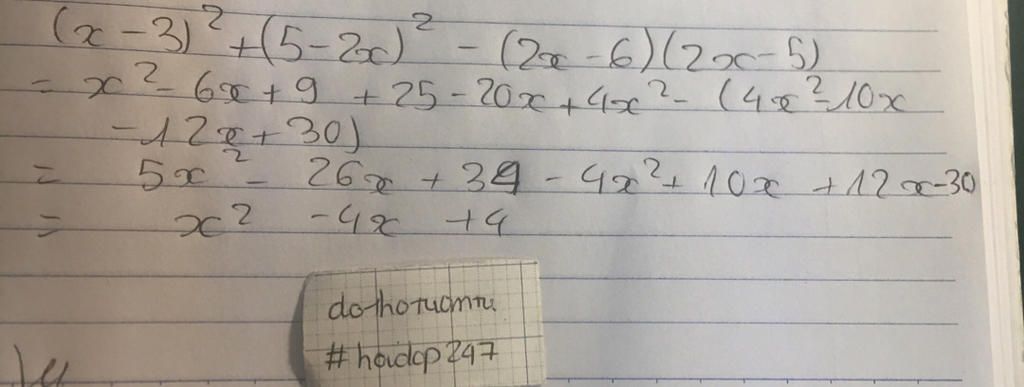 (x - 3)² + (5 - 2x)² - (2x - 6)(2x - 5)
= x² - 6x + 9 + 25 - 20x + 4x² - (4x² - 10x
- 12x + 30)
= 5x² - 26x + 34 - 4x² + 10x + 12x - 30
= x² - 4x + 4
#hoidap247